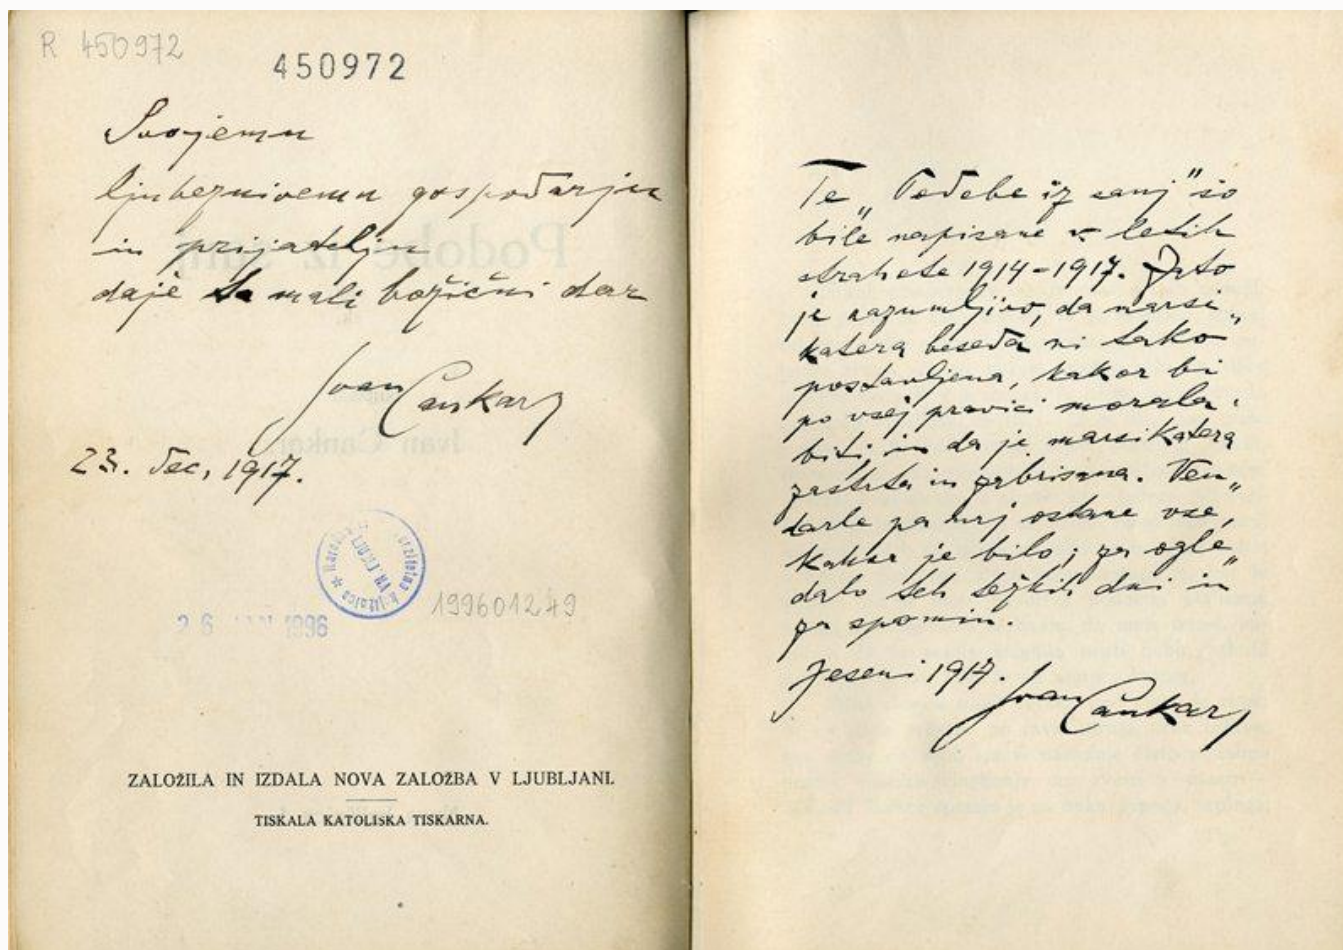 R 450972
450972
Svojemu
ljubeznivemu gospodarju
in prijatelju
daje ta mali božični dar
Ivan Cankar
23. dec, 1917.
26 JAN 1996
199601249
ZALOŽILA IN IZDALA NOVA ZALOŽBA V LJUBLJANI.
TISKALA KATOLIŠKA TISKARNA.
Te „Podobe iz sanj" so
bile napisane v letih
strahote 1914-1917. Zato
je razumljivo, da marsi„
katera beseda ni tako
postavljena, kakor bi
po vsej pravici morala
biti, in da je marsikatera
zastrta in zabrisana. Ven„
darle pa naj ostane vse,
kakor je bilo; za ogle„
dalo teh težkih dni in
za spomin.
Jeseni 1917.
Ivan Cankar